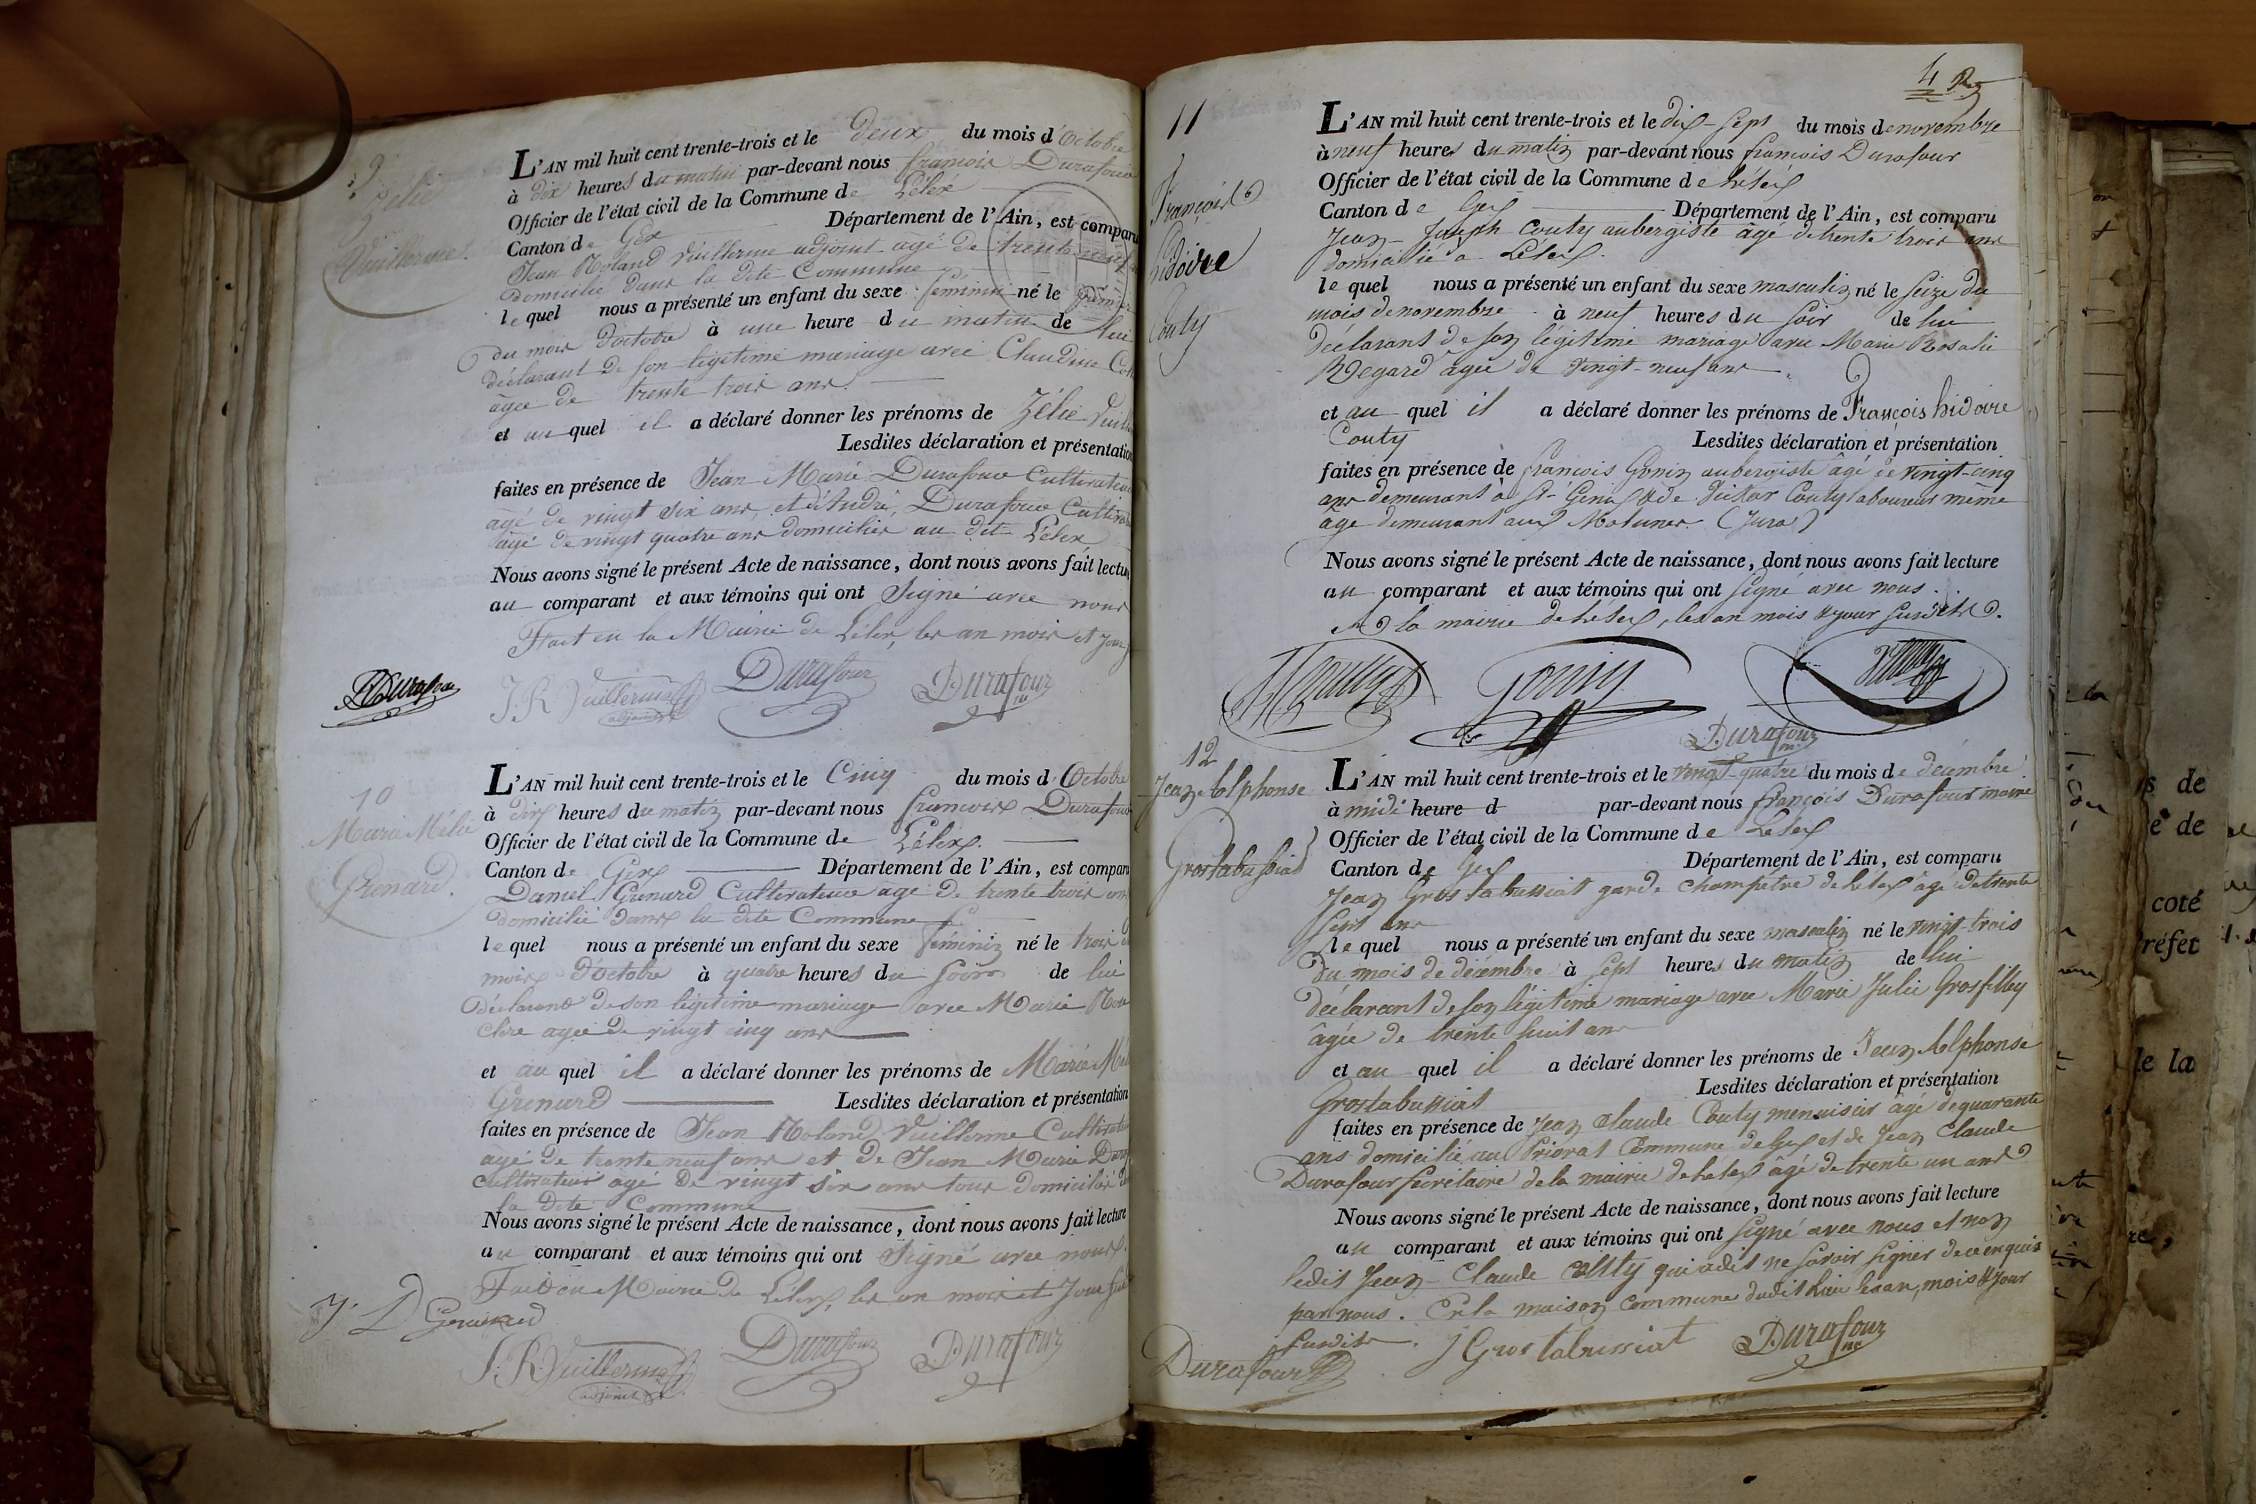 9
Zélie
Vuillerme
L'AN mil huit cent trente-trois et le deux du mois d'Octobre
à dix heures du matin par-devant nous françois Durafour
Officier de l'état civil de la Commune de Lélex
Canton de Gex Département de l'Ain, est comparu
Jean Roland Vuillerme adjoint agé de trente neuf
Domicilié dans la dite Commune
lequel nous a présenté un enfant du sexe féminin né le
du mois d'octobre à une heure du matin de lui
déclarant de son légitime mariage avec Claudine
agée de trente trois ans.
et au quel il a déclaré donner les prénoms de Zélie
Lesdites déclaration et présentation
faites en présence de Jean Marie Durafour Cultivateur
agé de vingt six ans, et d'André Durafour
agé de vingt quatre ans domiciliés au dit Lélex
Nous avons signé le présent Acte de naissance, dont nous avons fait lecture
au comparant et aux témoins qui ont Signé avec nous
Fait en la Mairie de Lélex, les an mois et jour
Durafour J. R. Vuillerme Durafour Durafour
adjoint
10
Marie Mélie
Grenard.
L'AN mil huit cent trente-trois et le Cinq du mois d'Octobre
à dix heures du matin par-devant nous françois Durafour
Officier de l'état civil de la Commune de Lélex.
Canton de Gex Département de l'Ain, est comparu
Daniel Grenard Cultivateur agé de trente trois ans
domicilié dans la dite Commune
lequel nous a présenté un enfant du sexe féminin né le trois
mois d'Octobre à quatre heures du Soir de lui
déclarant de son légitime mariage avec Marie
agée de vingt cinq ans
et au quel il a déclaré donner les prénoms de Marie
Grenard Lesdites déclaration et présentation
faites en présence de Jean Roland Vuillerme
agé de trente neuf ans et de Jean Marie
Cultivateur agé de vingt six ans tous domiciliés
la dite Commune
Nous avons signé le présent Acte de naissance, dont nous avons fait lecture
au comparant et aux témoins qui ont Signé avec nous.
Fait en Mairie de Lélex, les an mois et Jour
J. R. Vuillerme Durafour Durafour
adjoint
4
11
François
hidoire
Couty
L'AN mil huit cent trente-trois et le dix-sept du mois de novembre
à neuf heures du matin par-devant nous françois Durafour
Officier de l'état civil de la Commune de Lélex
Canton de Gex Département de l'Ain, est comparu
Jean-Joseph Couty aubergiste agé de trente trois ans
domicilié à Lélex.
lequel nous a présenté un enfant du sexe masculin né le seize du
mois de novembre à neuf heures du soir de lui
déclarant de son légitime mariage avec Marie Rosalie
Regard agée de vingt-neuf ans
et au quel il a déclaré donner les prénoms de François hidoire
Couty Lesdites déclaration et présentation
faites en présence de françois Gonin aubergiste âgé de vingt-cinq
ans demeurant à St-Genis & de Victor Couty laboureur même
âge demeurant aux Molunes (Jura)
Nous avons signé le présent Acte de naissance, dont nous avons fait lecture
au comparant et aux témoins qui ont signé avec nous.
A la mairie de Lélex, les an mois & jour susdits.
Gonin
Durafour
12
Jean Alphonse
Grostabussiat
L'AN mil huit cent trente-trois et le vingt-quatre du mois de décembre
à midi heure d par-devant nous françois Durafour maire
Officier de l'état civil de la Commune de Lélex
Canton de Gex Département de l'Ain, est comparu
Jean Grostabussiat garde champêtre de Lélex âgé de trente
sept ans
lequel nous a présenté un enfant du sexe masculin né le vingt-trois
du mois de décembre à sept heures du matin de lui
déclarant de son légitime mariage avec Marie Julie Grosfilley
âgée de trente huit ans
et au quel il a déclaré donner les prénoms de Jean Alphonse
Grostabussiat Lesdites déclaration et présentation
faites en présence de Jean Claude Couty menuisier âgé de quarante
ans domicilié au Priorat Commune de Gex et de Jean Claude
Durafour secrétaire de la mairie de Lélex âgé de trente un ans
Nous avons signé le présent Acte de naissance, dont nous avons fait lecture
au comparant et aux témoins qui ont signé avec nous et non
ledit Jean-Claude Couty qui a dit ne savoir signer de ce enquis
par nous. En la maison commune dudit lieu les an, mois & jour
susdits.
Durafour J Grostabussiat Durafour
s de
e de
coté
réfet
le la